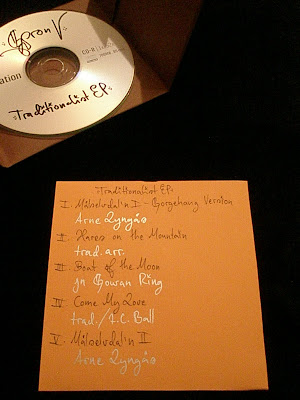 Goron V
CD-R
Traditionalist EP.
Traditionalist EP:
I. Målselvdal'n I - Gorgehang Version
Arne Lyngås
II. Hares on the Mountain
trad. arr.
III. Boat of the Moon
In Gowan Ring
IV. Come My Love
trad./E.C. Ball
V. Målselvdal'n II
Arne Lyngås